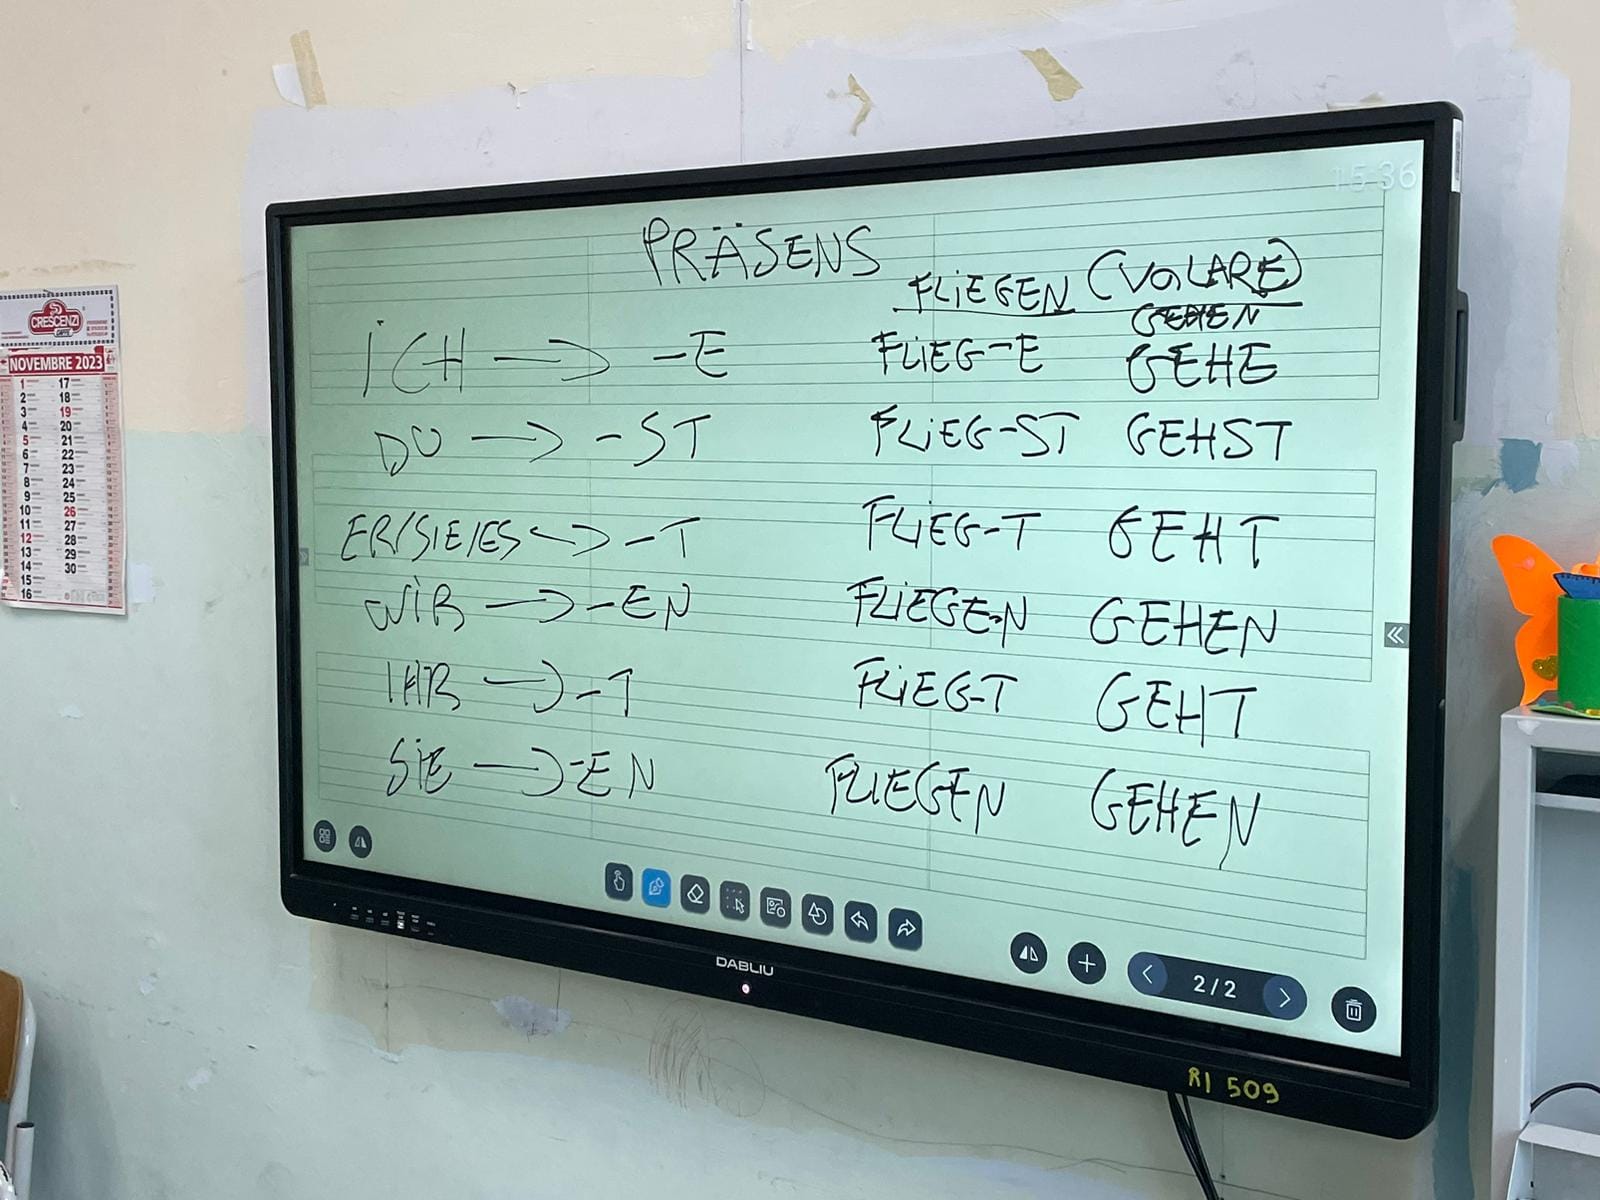 15:36
PRÄSENS
FLIEGEN (VOLARE)
GEHEN
ICH → -E FLIEG-E GEHE
DU → -ST FLIEG-ST GEHST
ER/SIE/ES <-> -T FLIEG-T GEHT
WIR → -EN FLIEGE-N GEHEN
IHR → -T FLIEG-T GEHT
SIE → -EN FLIEGEN GEHEN
2/2
DABLIU
RI 509
CRESCENZI
CAFFÈ
NOVEMBRE 2023
1 17
2 18
3 19
4 20
5 21
6 22
7 23
8 24
9 25
10 26
11 27
12 28
13 29
14 30
15
16